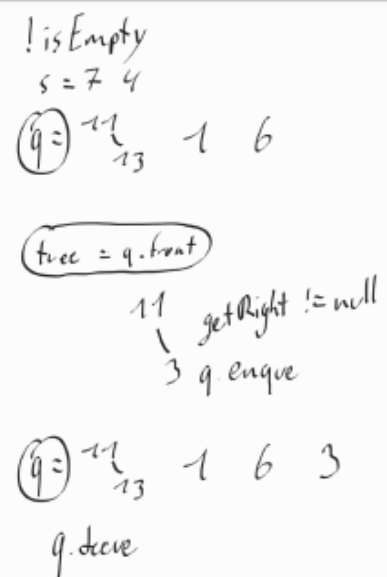 ! isEmpty
s = 7 4
q = 11 1 6
13
tree = q.front
11 getRight != null
3 q.enque
q = 11 1 6 3
13